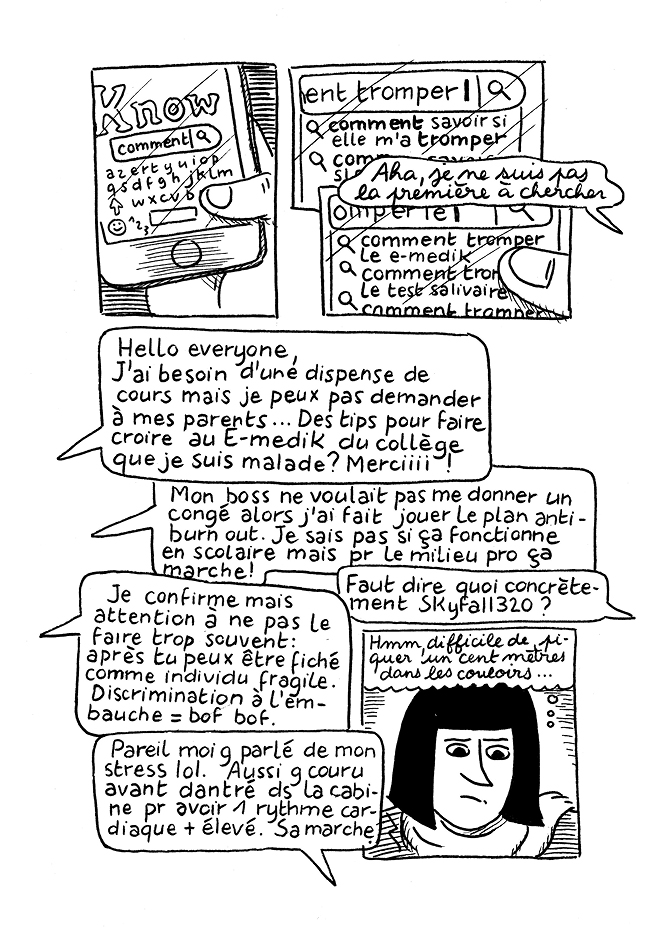 Know
comment
azertyuiop
qsdfghjklm
wxcvb
123
ent tromper
comment savoir si
elle m'a tromper
Aha, je ne suis pas
la première à chercher
omper le
comment tromper
le e-medik
comment
le test salivaire
comment tromper
Hello everyone,
J'ai besoin d'une dispense de
cours mais je peux pas demander
à mes parents... Des tips pour faire
croire au E-medik du collège
que je suis malade? Merciiii !
Mon boss ne voulait pas me donner un
congé alors j'ai fait jouer le plan anti-
burn out. Je sais pas si ça fonctionne
en scolaire mais pr le milieu pro ça
marche!
Faut dire quoi concrète-
ment Skyfall320 ?
Je confirme mais
attention à ne pas le
faire trop souvent:
après tu peux être fiché
comme individu fragile.
Discrimination à l'em-
bauche = bof bof.
Hmm, difficile de pi-
quer un cent mètres
dans les couloirs...
Pareil moi g parlé de mon
stress lol. Aussi g couru
avant dantré ds la cabi-
ne pr avoir 1 rythme car-
diaque + élevé. Sa marche